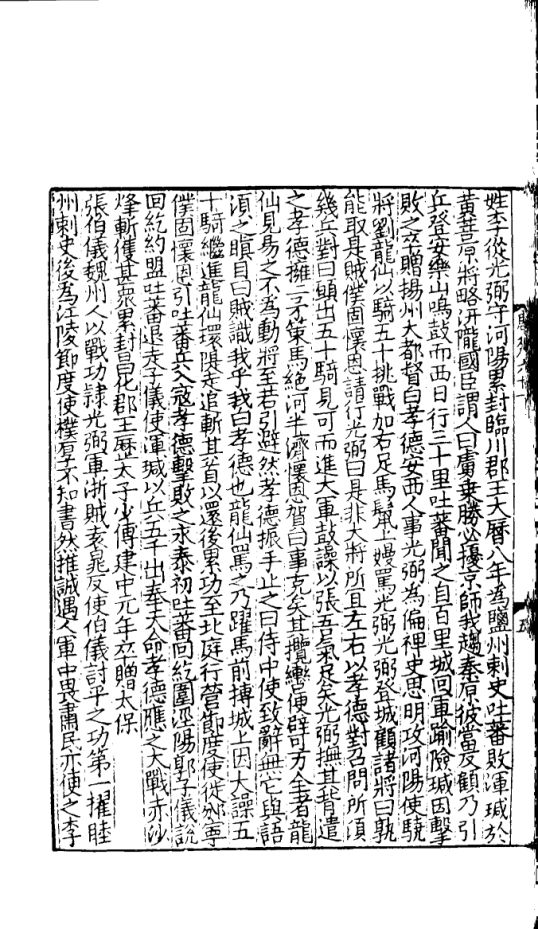 姓李從光弼守河陽累封臨川郡王大曆八年為鹽州刺史吐蕃敗渾瑊於
黃菩原將略汧隴國臣謂人曰虜乗勝必擾京師我趨秦原彼當反顧乃引
兵登安樂山鳴鼓而西日行三十里吐蕃聞之自百里城回軍踰險瑊因擊
敗之卒贈揚州大都督白孝德安西人事光弼為偏裨史思明攻河陽使驍
將劉龍仙以騎五十挑戰加右足馬鬛上嫚罵光弼光弼登城顧諸將曰孰
能取是賊僕固懷恩請行光弼曰是非大將所宜左右以孝德對召問所須
幾兵對曰願出五十騎見可而進大軍鼓譟以張吾氣足矣光弼撫其背遣
之孝德擁二矛策馬絕河半濟懷恩賀曰事克矣其攬轡便辟可万全者龍
仙見易之不為動將至若引避然孝德振手止之曰侍中使致辭無它與語
須之瞋目曰賊識我乎我白孝德也龍仙罵之乃躍馬前搏城上因大譟五
十騎繼進龍仙環隄走追斬其首以還後累功至北庭行營節度使徙邠寧
僕固懷恩引吐蕃兵入寇孝德擊敗之永泰初吐蕃回紇圍涇陽郭子儀說
回紇約盟吐蕃退走子儀使渾瑊以兵五千出奉天命孝德應之大戰赤沙
烽斬獲甚衆累封昌化郡王歷太子少傅建中元年卒贈太保
張伯儀魏州人以戰功隷光弼軍浙賊袁晁反使伯儀討平之功第一擢睦
州刺史後為江陵節度使樸厚不知書然推誠遇人軍中畏肅民亦便之李